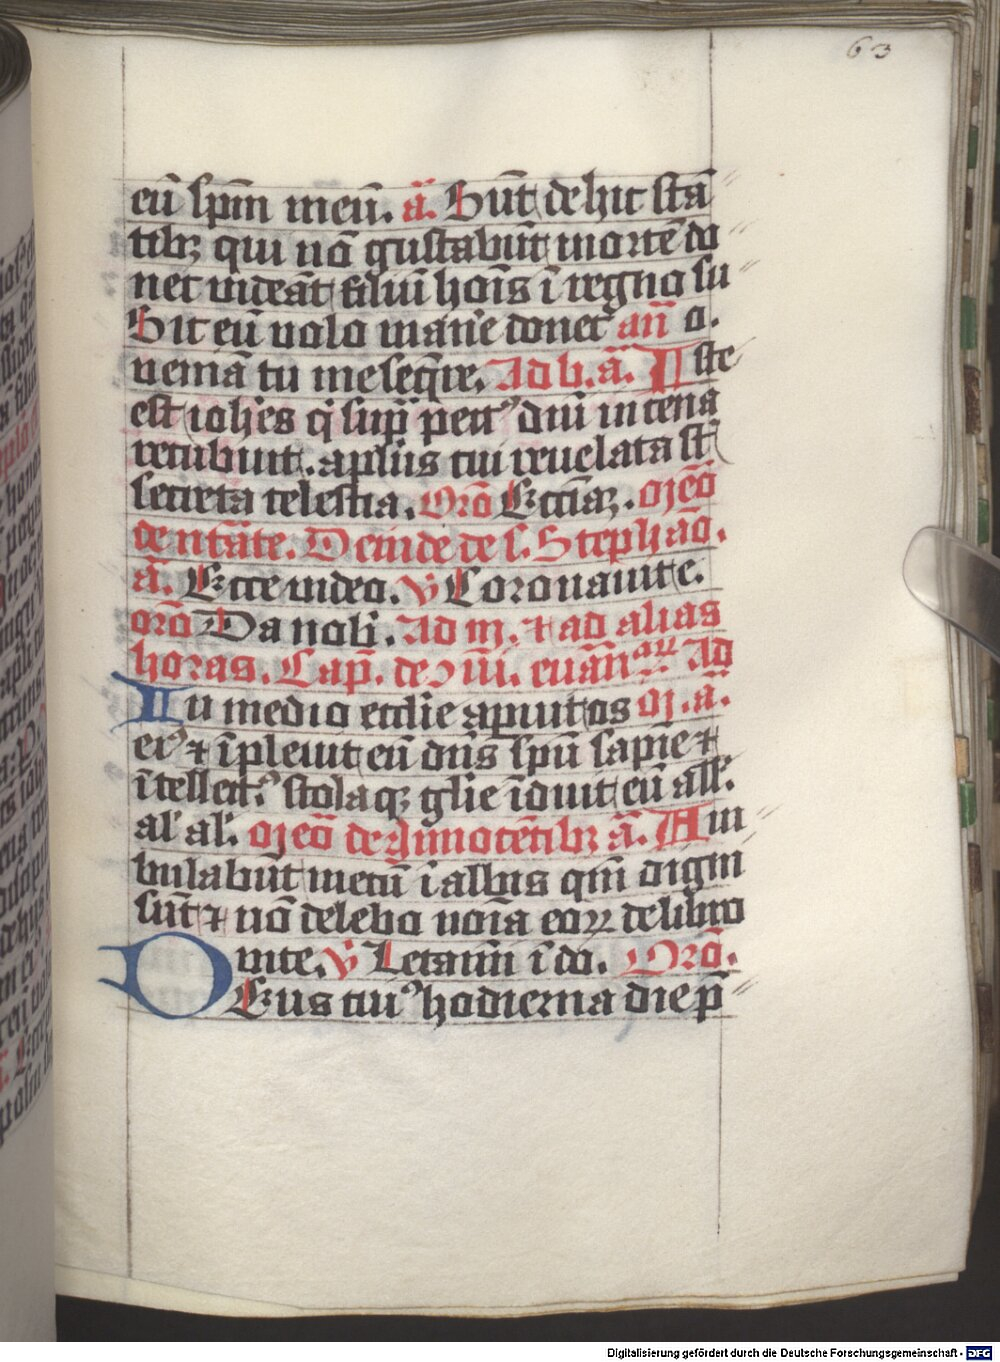 63
eū sp̄m meū. ā. Sūt de hic stā
tibꝫ qui nō gustabūt mortē do
nec videāt filiū hoīs ī regno su
Sic eū volo manē donec an̄ o.
veniā tu me seqr̄e. Ad b. ā. Iste
est ioh̄es q̄ sup̄ pectꝰ dn̄i in cena
recubuit. apl̄us cui revelata st̄
secreta celestia. Oro᷒ Eccl̄iaꝫ.
de nr̄āte. Deinde de s. Stephāo.
ā. Ecce video. v̄ Coronavit e.
orō Da nob̄. Ad m̄. ⁊ ad alias
horas. Cap̄. de euān Ad
In medio ecclīe apuit os ā.
eiꝰ ⁊ īplevit eū dn̄s sp̄u sapiē ⁊
ītellectꝰ stolaqꝫ glīe īduit eū all̄.
al̄ al̄. de Innocētibꝫ ā. Am
bulabūt mecū ī albis qm̄ digni
sūt ⁊ nō delebo noīa eoꝝ de libro
vite. v̄ Letamī ī do. Orō.
Deus cuiꝰ hodierna die p̄
Digitalisierung gefördert durch die Deutsche Forschungsgemeinschaft - DFG